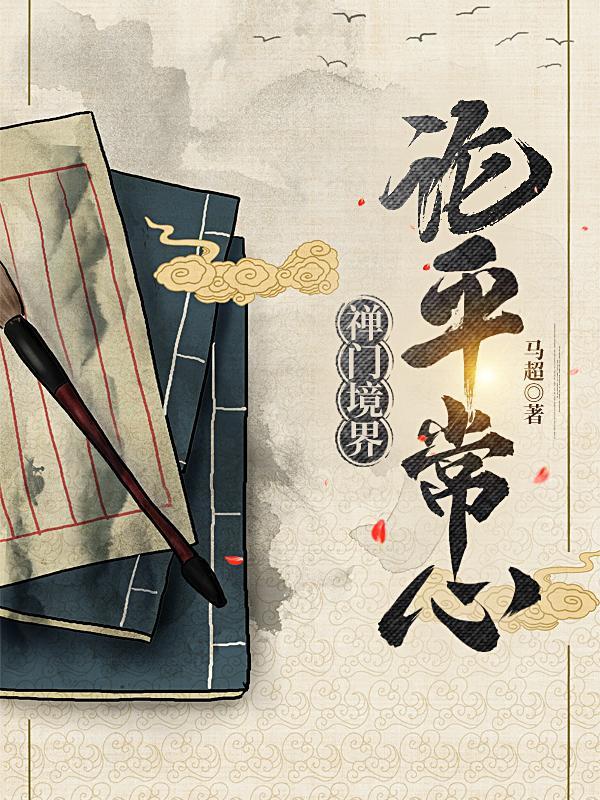 论平常心
禅门境界
马超◎著